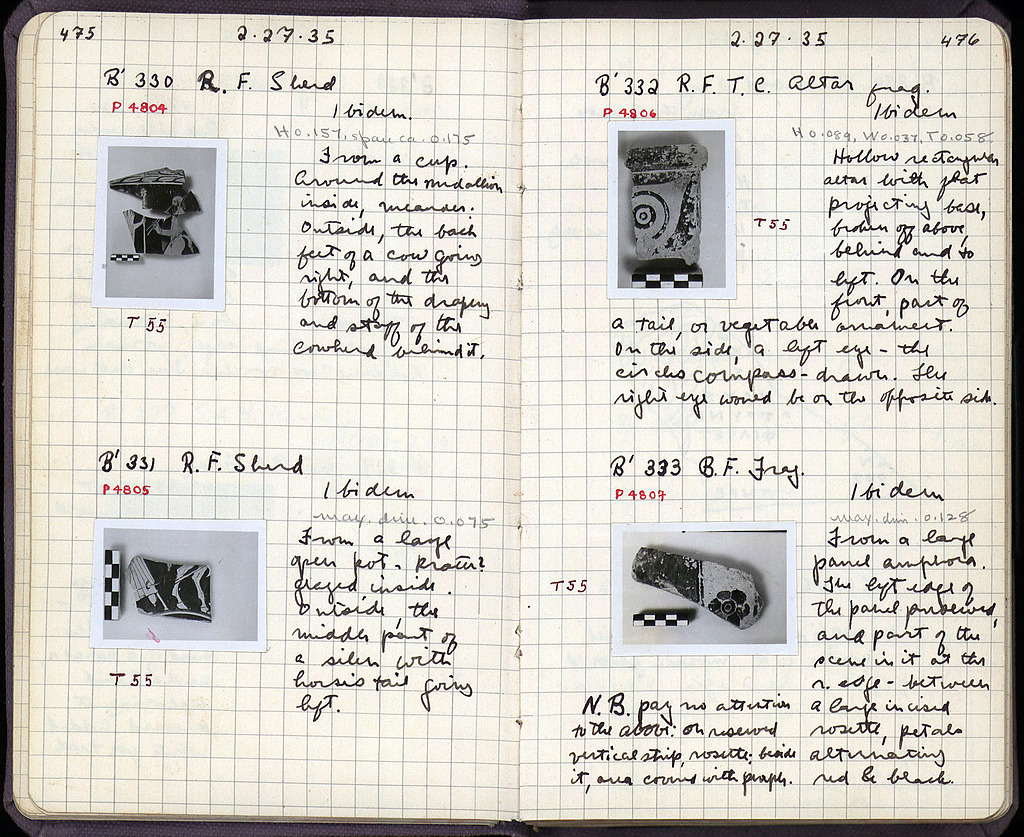 475
2·27·35
B' 330 R. F. Sherd
P 4804
Ibidem.
H 0.157, span ca. 0.175
From a cup.
Around the medallion
inside, meander.
Outside, the back
feet of a cow going
right, and the
bottom of the drapery
and staff of the
cowherd behind it.
T 55
B' 331 R. F. Sherd
P 4805
Ibidem
max. dim. 0.075
From a large
open pot - krater?
glazed inside.
Outside, the
middle part of
a silen with
horse's tail going
left.
T 55
2·27·35
476
B' 332 R. F. T. C. Altar frag.
P 4806
Ibidem
H 0.089, W 0.037, T 0.058
Hollow rectangular
altar with flat
projecting base,
broken off above,
behind and to
left. On the
front, part of
a tail, or vegetable ornament.
On the side, a left eye - the
circles compass-drawn. The
right eye would be on the opposite side.
T 55
B' 333 B. F. Frag.
P 4807
Ibidem
max. dim. 0.128
From a large
panel amphora.
The left edge of
the panel preserved,
and part of the
scene in it at the
r. edge - between
a large incised
rosette, petals
alternating
red & black.
T 55
N. B. pay no attention
to the above: on reserved
vertical strip, rosette; beside
it, area covered with purple.